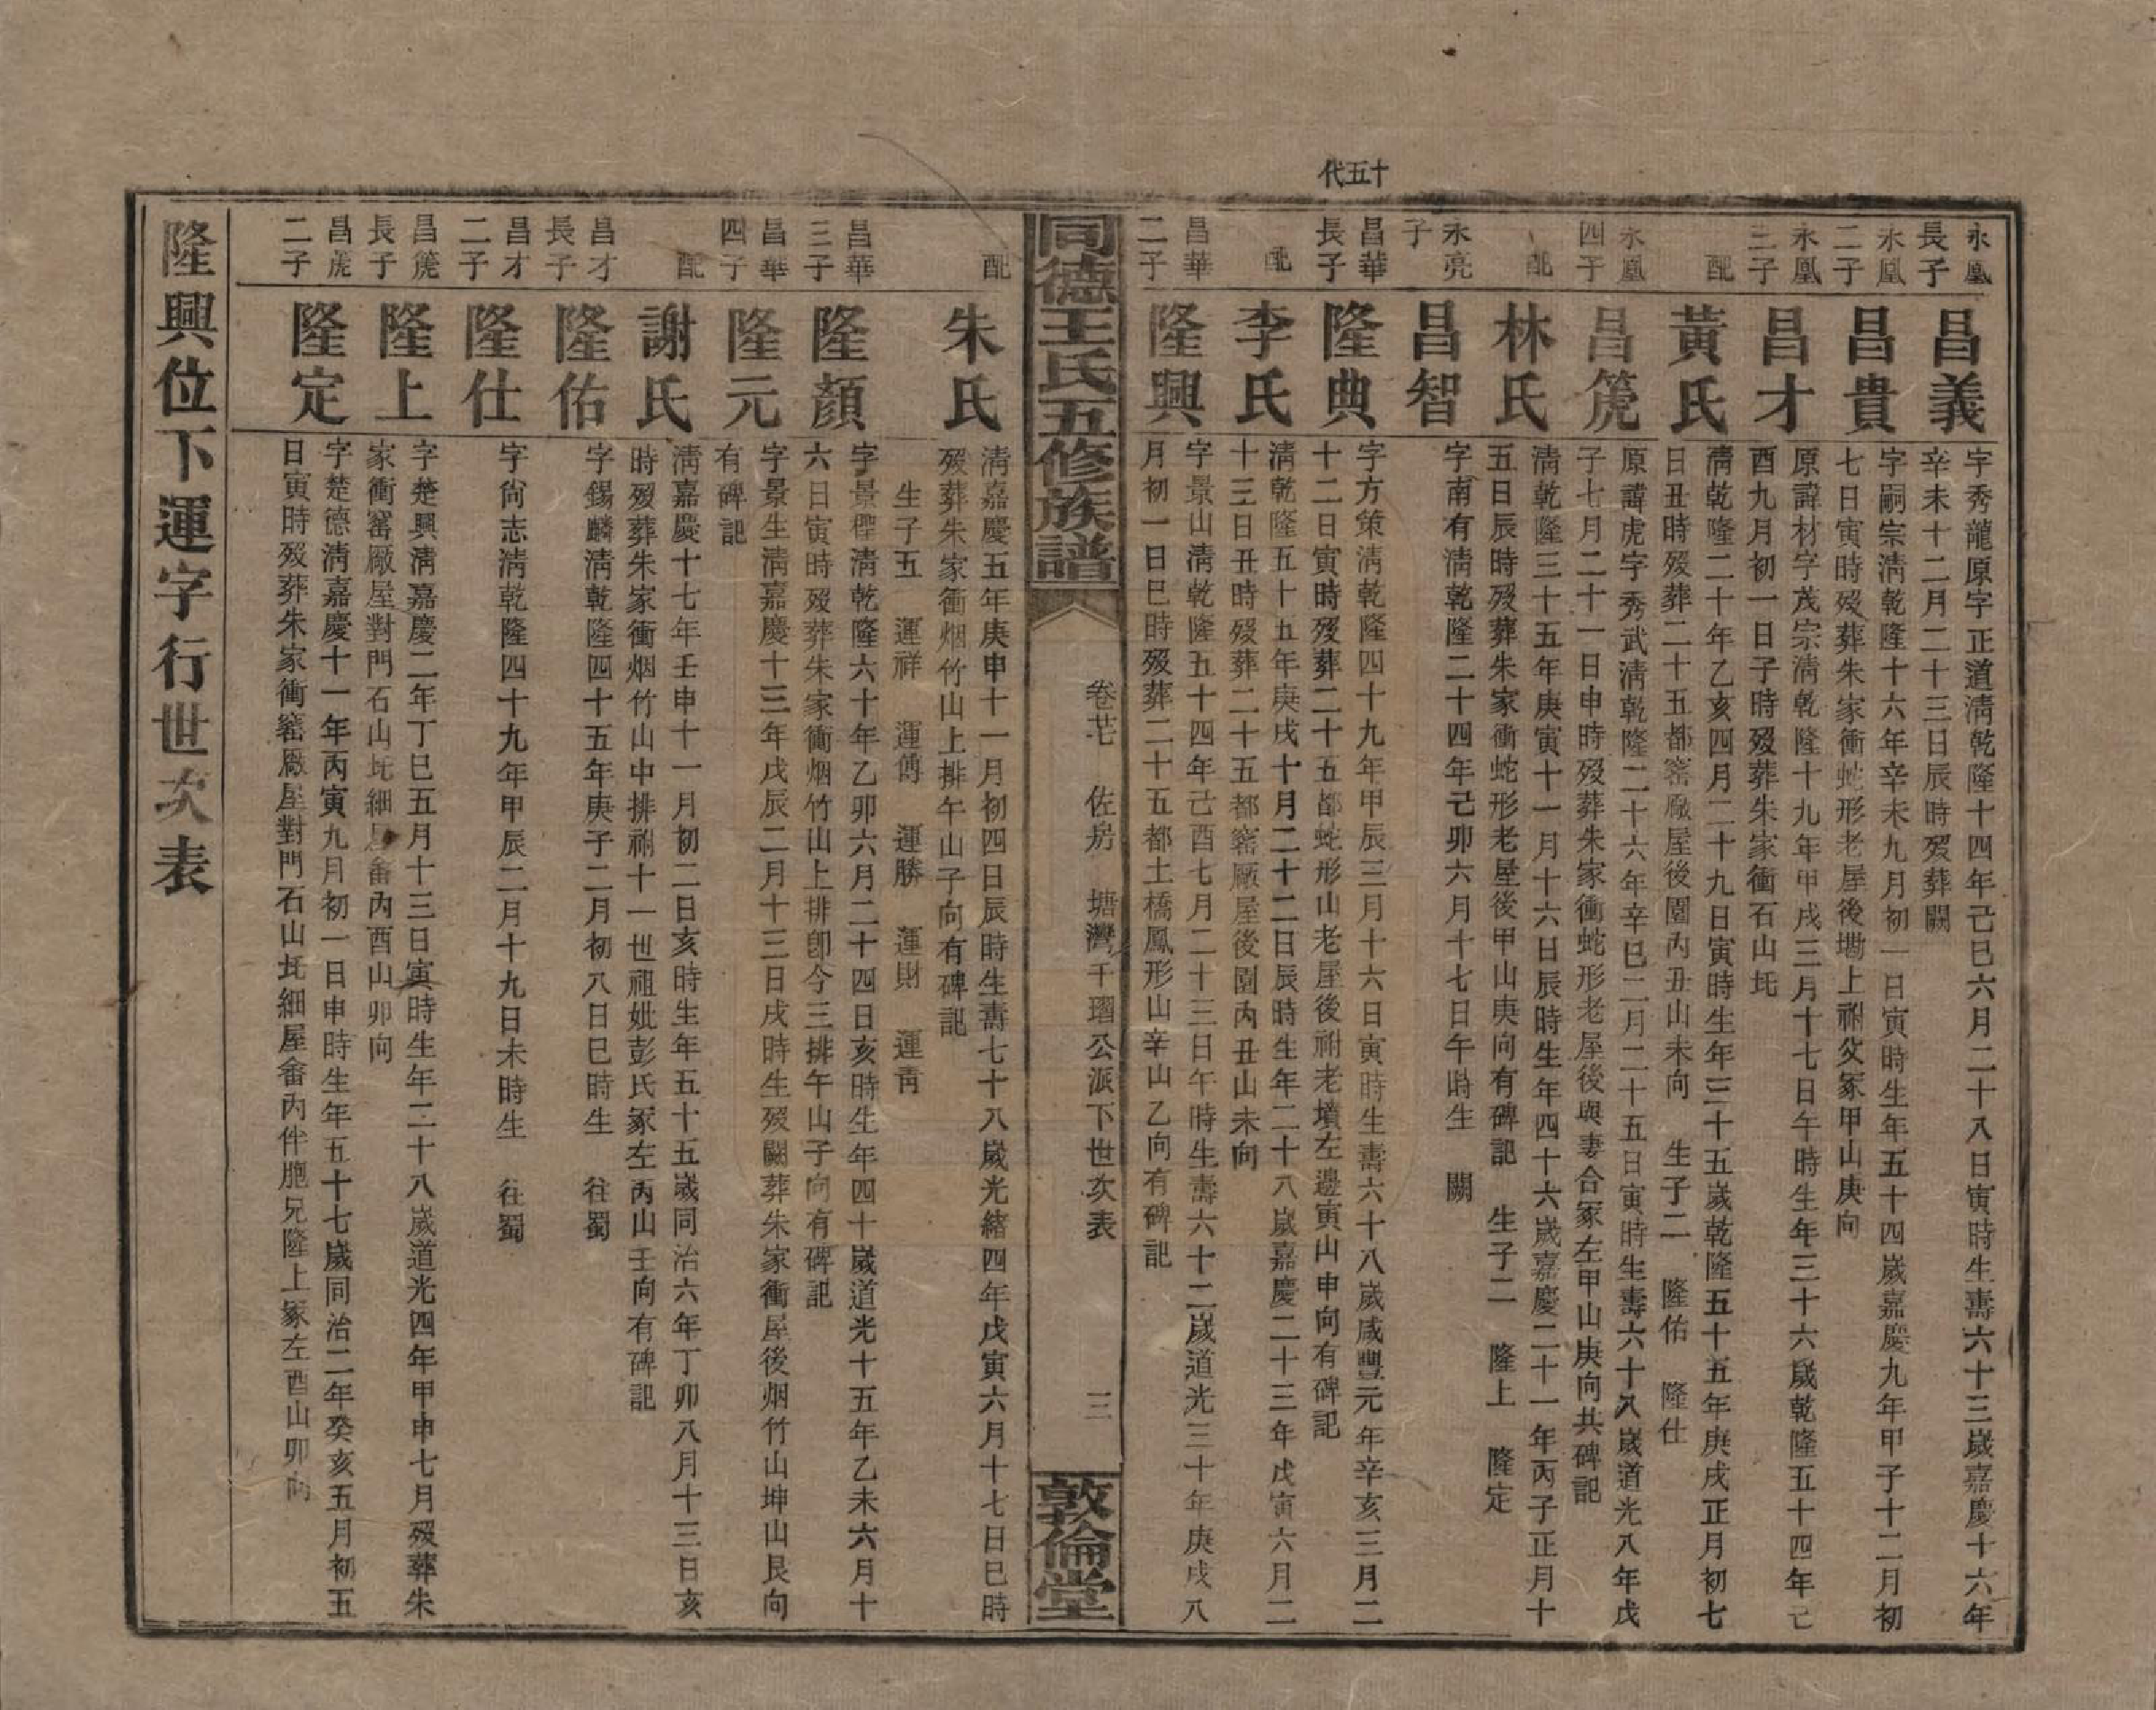 十五代
永鳳長子
昌義
字秀龍原字正道淸乾隆十四年己巳六月二十八日寅時生壽六十三歲嘉慶十六年
辛未十二月二十三日辰時歿葬闕
永鳳二子
昌貴
字嗣宗淸乾隆十六年辛未九月初一日寅時生年五十四歲嘉慶九年甲子十二月初
七日寅時歿葬朱家衝蛇形老屋後墈上祔父冢甲山庚向
永鳳三子
昌才
原諱材字茂宗淸乾隆十九年甲戌三月十七日午時生年三十六歲乾隆五十四年己
酉九月初一日子時歿葬朱家衝石山坵
配
黃氏
淸乾隆二十年乙亥四月二十九日寅時生年三十五歲乾隆五十五年庚戌正月初七
日丑時歿葬二十五都窰廠屋後園內丑山未向 生子二 隆佑 隆仕
永鳳四子
昌箎
原諱虎字秀武淸乾隆二十六年辛巳二月二十五日寅時生壽六十八歲道光八年戊
子七月二十一日申時歿葬朱家衝蛇形老屋後與妻合冢左甲山庚向共碑記
配
林氏
淸乾隆三十五年庚寅十一月十六日辰時生年四十六歲嘉慶二十一年丙子正月十
五日辰時歿葬朱家衝蛇形老屋後甲山庚向有碑記 生子二 隆上 隆定
永亮子
昌智
字南有淸乾隆二十四年己卯六月十七日午時生 闕
昌華長子
隆典
字方策淸乾隆四十九年甲辰三月十六日寅時生壽六十八歲咸豐元年辛亥三月二
十二日寅時歿葬二十五都蛇形山老屋後祔老墳左邊寅山申向有碑記
配
李氏
淸乾隆五十五年庚戌十月二十二日辰時生年二十八歲嘉慶二十三年戊寅六月二
十三日丑時歿葬二十五都窰廠屋後園內丑山未向
昌華二子
隆興
字景山淸乾隆五十四年己酉七月二十三日午時生壽六十二歲道光三十年庚戌八
月初一日巳時歿葬二十五都土橋鳳形山辛山乙向有碑記
同德王氏五修族譜
卷芼 佐房 塘灣千瑠公派下世次表 三
敦倫堂
配
朱氏
淸嘉慶五年庚申十一月初四日辰時生壽七十八歲光緒四年戊寅六月十七日巳時
歿葬朱家衝烟竹山上排午山子向有碑記
生子五 運祥 運傅 運勝 運財 運靑
昌華三子
隆顏
字景檉淸乾隆六十年乙卯六月二十四日亥時生年四十歲道光十五年乙未六月十
六日寅時歿葬朱家衝烟竹山上排卽今三排午山子向有碑記
昌華四子
隆元
字景生淸嘉慶十三年戊辰二月十三日戌時生歿闕葬朱家衝屋後烟竹山坤山艮向
有碑記
配
謝氏
淸嘉慶十七年壬申十一月初二日亥時生年五十五歲同治六年丁卯八月十三日亥
時歿葬朱家衝烟竹山中排祔十一世祖妣彭氏冢左丙山壬向有碑記
昌才長子
隆佑
字錫麟淸乾隆四十五年庚子二月初八日巳時生 往蜀
昌才二子
隆仕
字尙志淸乾隆四十九年甲辰二月十九日未時生 往蜀
昌箎長子
隆上
字楚興淸嘉慶二年丁巳五月十三日寅時生年二十八歲道光四年甲申七月歿葬朱
家衝窰廠屋對門石山坵細屋畬內酉山卯向
昌箎二子
隆定
字楚德淸嘉慶十一年丙寅九月初一日申時生年五十七歲同治二年癸亥五月初五
日寅時歿葬朱家衝窰廠屋對門石山坵細屋畬內伴胞兄隆上冢左酉山卯向
隆興位下運字行世次表